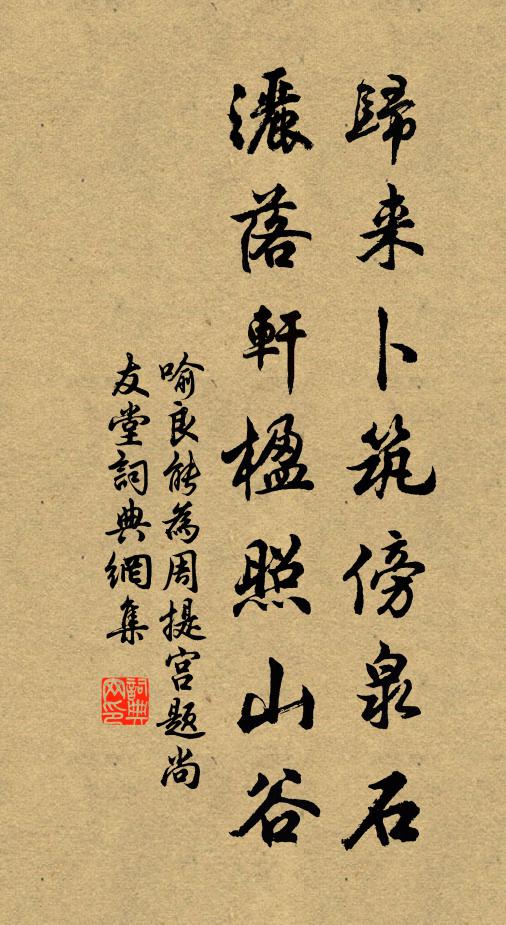 歸来卜筑傍泉石
灑落軒楹照山谷
喻良能為周提宮题尚
友堂詞典網集
詞典网印